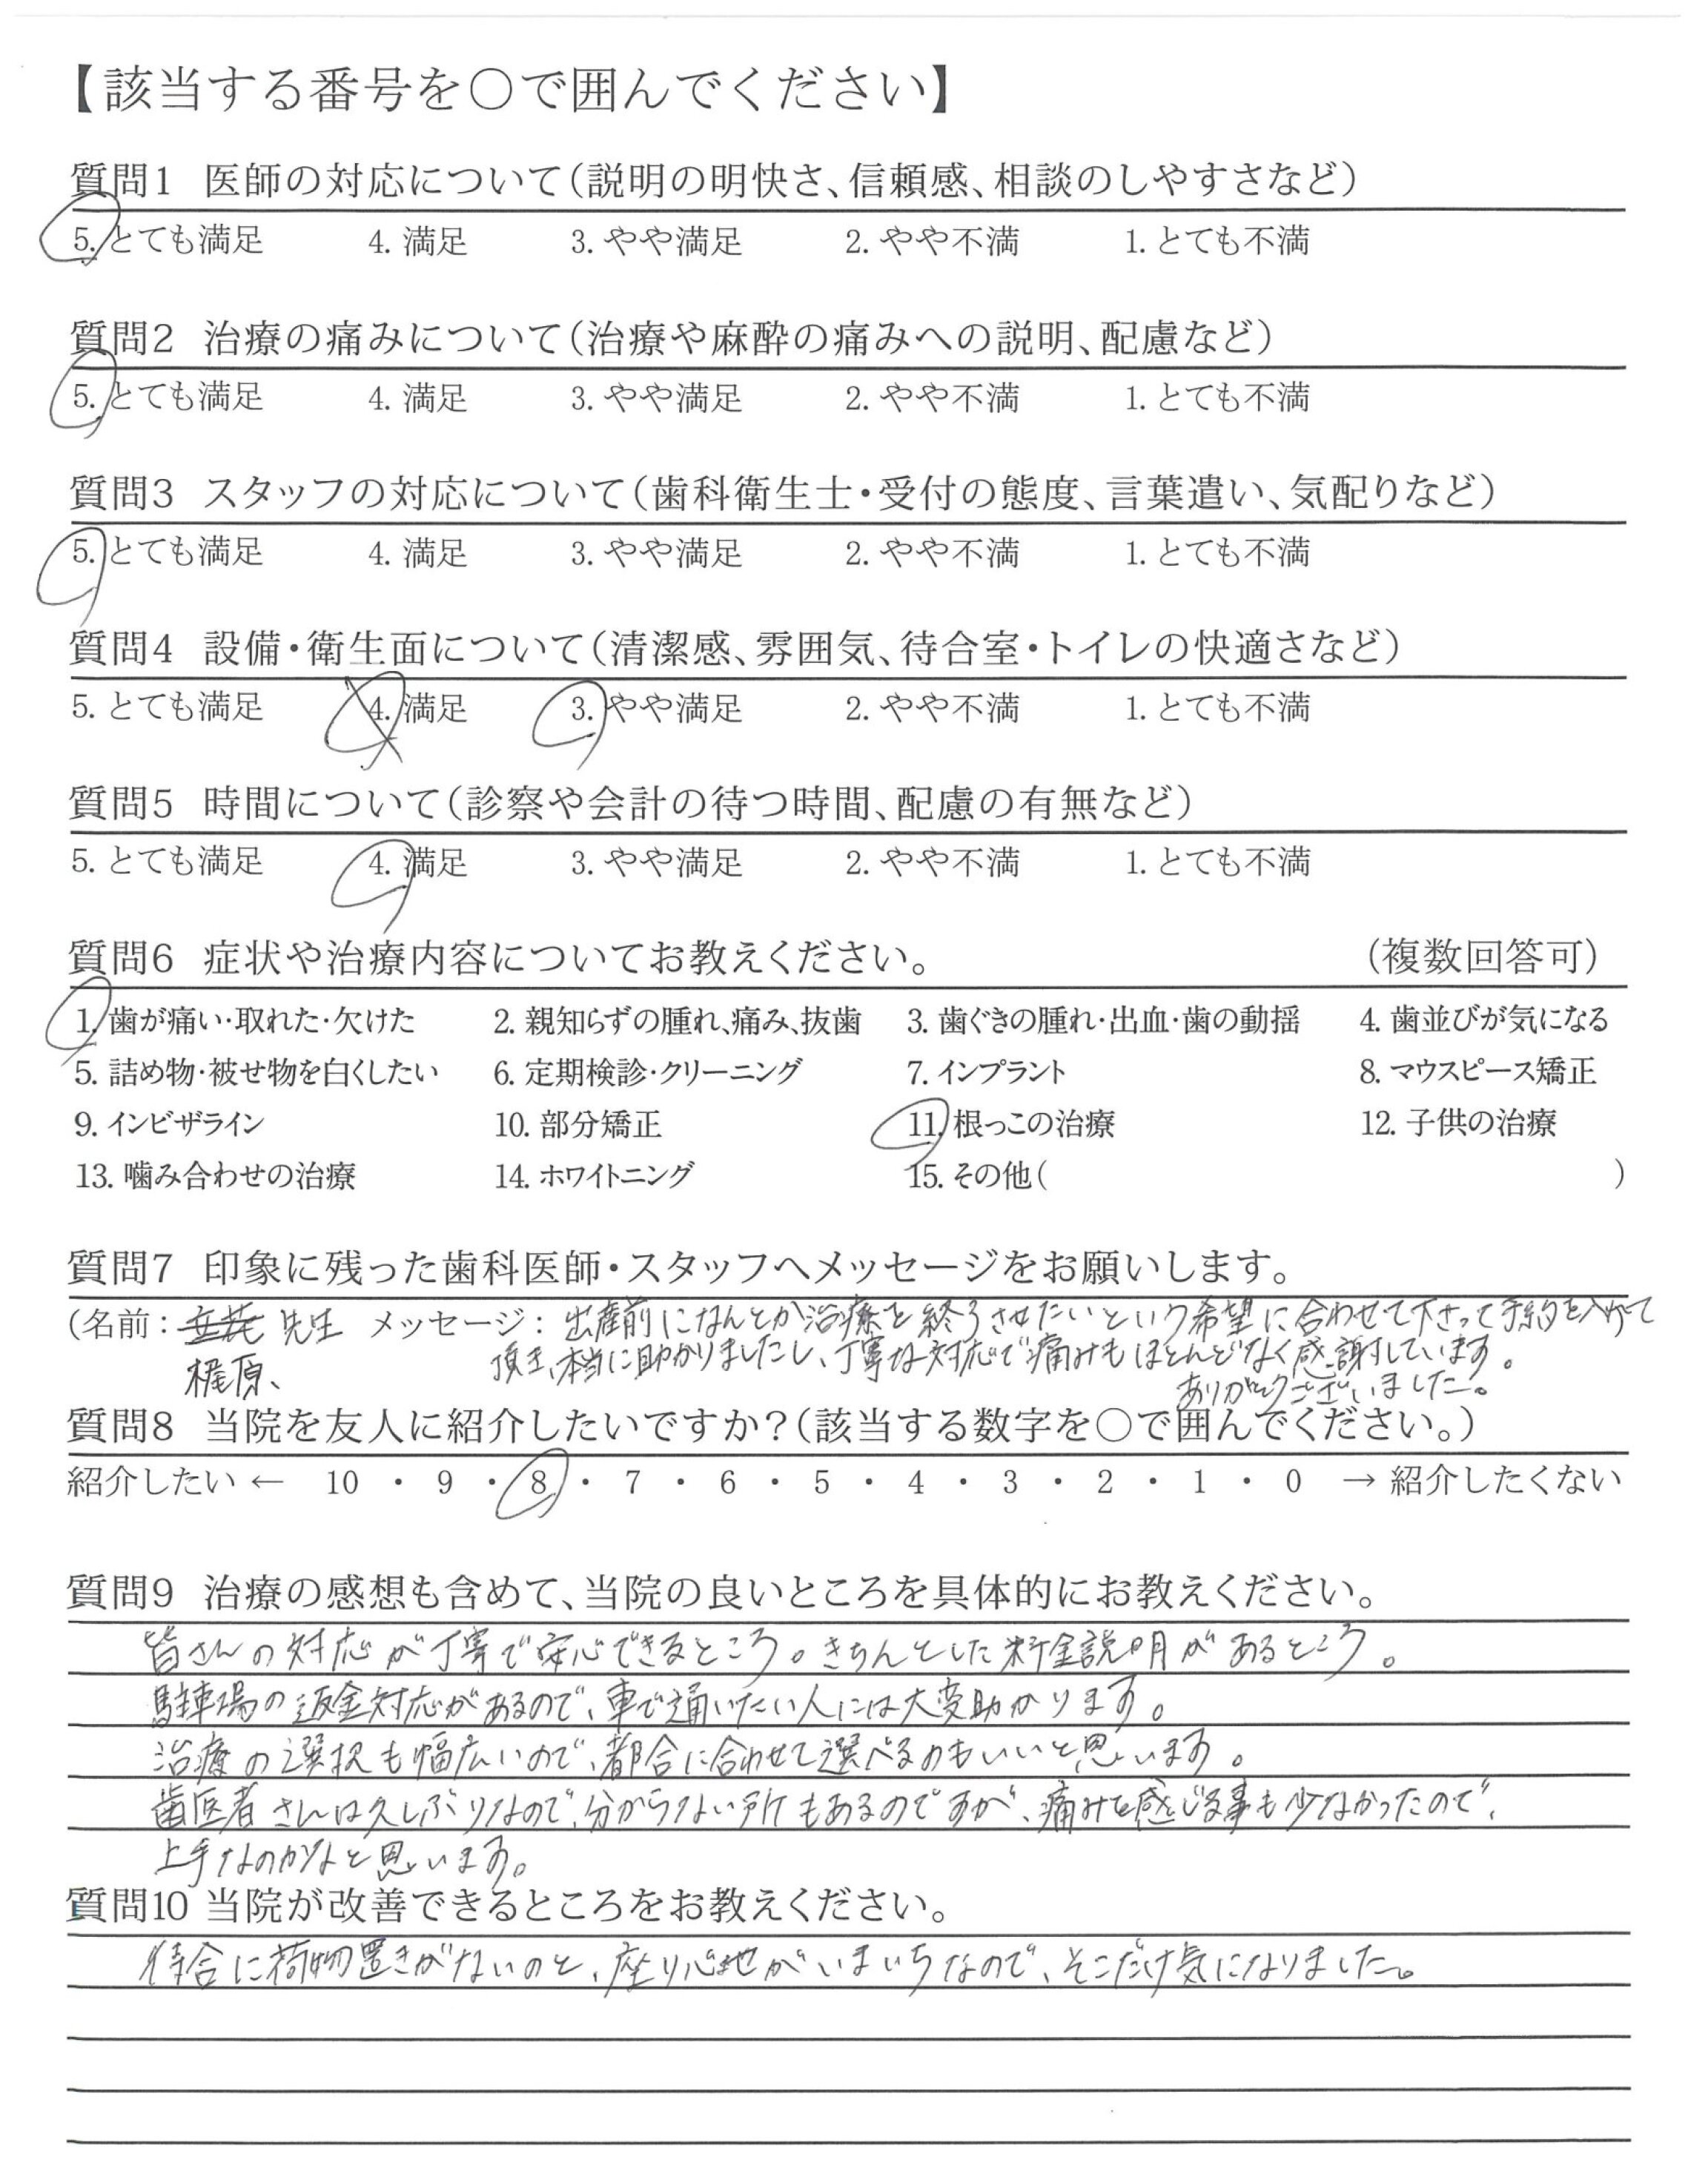 【該当する番号を○で囲んでください】
質問1 医師の対応について(説明の明快さ、信頼感、相談のしやすさなど)
5. とても満足 4. 満足 3. やや満足 2. やや不満 1. とても不満
質問2 治療の痛みについて(治療や麻酔の痛みへの説明、配慮など)
5. とても満足 4. 満足 3. やや満足 2. やや不満 1. とても不満
質問3 スタッフの対応について(歯科衛生士・受付の態度、言葉遣い、気配りなど)
5. とても満足 4. 満足 3. やや満足 2. やや不満 1. とても不満
質問4 設備・衛生面について(清潔感、雰囲気、待合室・トイレの快適さなど)
5. とても満足 4. 満足 3. やや満足 2. やや不満 1. とても不満
質問5 時間について(診察や会計の待つ時間、配慮の有無など)
5. とても満足 4. 満足 3. やや満足 2. やや不満 1. とても不満
質問6 症状や治療内容についてお教えください。 (複数回答可)
1. 歯が痛い・取れた・欠けた 2. 親知らずの腫れ、痛み、抜歯 3. 歯ぐきの腫れ・出血・歯の動揺 4. 歯並びが気になる
5. 詰め物・被せ物を白くしたい 6. 定期検診・クリーニング 7. インプラント 8. マウスピース矯正
9. インビザライン 10. 部分矯正 11. 根っこの治療 12. 子供の治療
13. 噛み合わせの治療 14. ホワイトニング 15. その他( )
質問7 印象に残った歯科医師・スタッフへメッセージをお願いします。
(名前: 先生 メッセージ: 出産前になんとか治療を終了させたいという希望に合わせて下さって予約を入れて
頂き、本当に助かりましたし、丁寧な対応で痛みもほとんどなく感謝しています。
梶原、 ありがとうございました。
質問8 当院を友人に紹介したいですか?(該当する数字を○で囲んでください。)
紹介したい ← 10 ・ 9 ・ 8 ・ 7 ・ 6 ・ 5 ・ 4 ・ 3 ・ 2 ・ 1 ・ 0 → 紹介したくない
質問9 治療の感想も含めて、当院の良いところを具体的にお教えください。
皆さんの対応が丁寧で安心できるところ。きちんとした料金説明があるところ。
駐車場の返金対応があるので、車で通いたい人には大変助かります。
治療の選択も幅広いので、都合に合わせて選べるのもいいと思います。
歯医者さんは久しぶりなので、分からない所もあるのですが、痛みを感じる事も少なかったので、
上手なのかなと思います。
質問10 当院が改善できるところをお教えください。
待合に荷物置きがないのと、座り心地がいまいちなので、そこだけ気になりました。